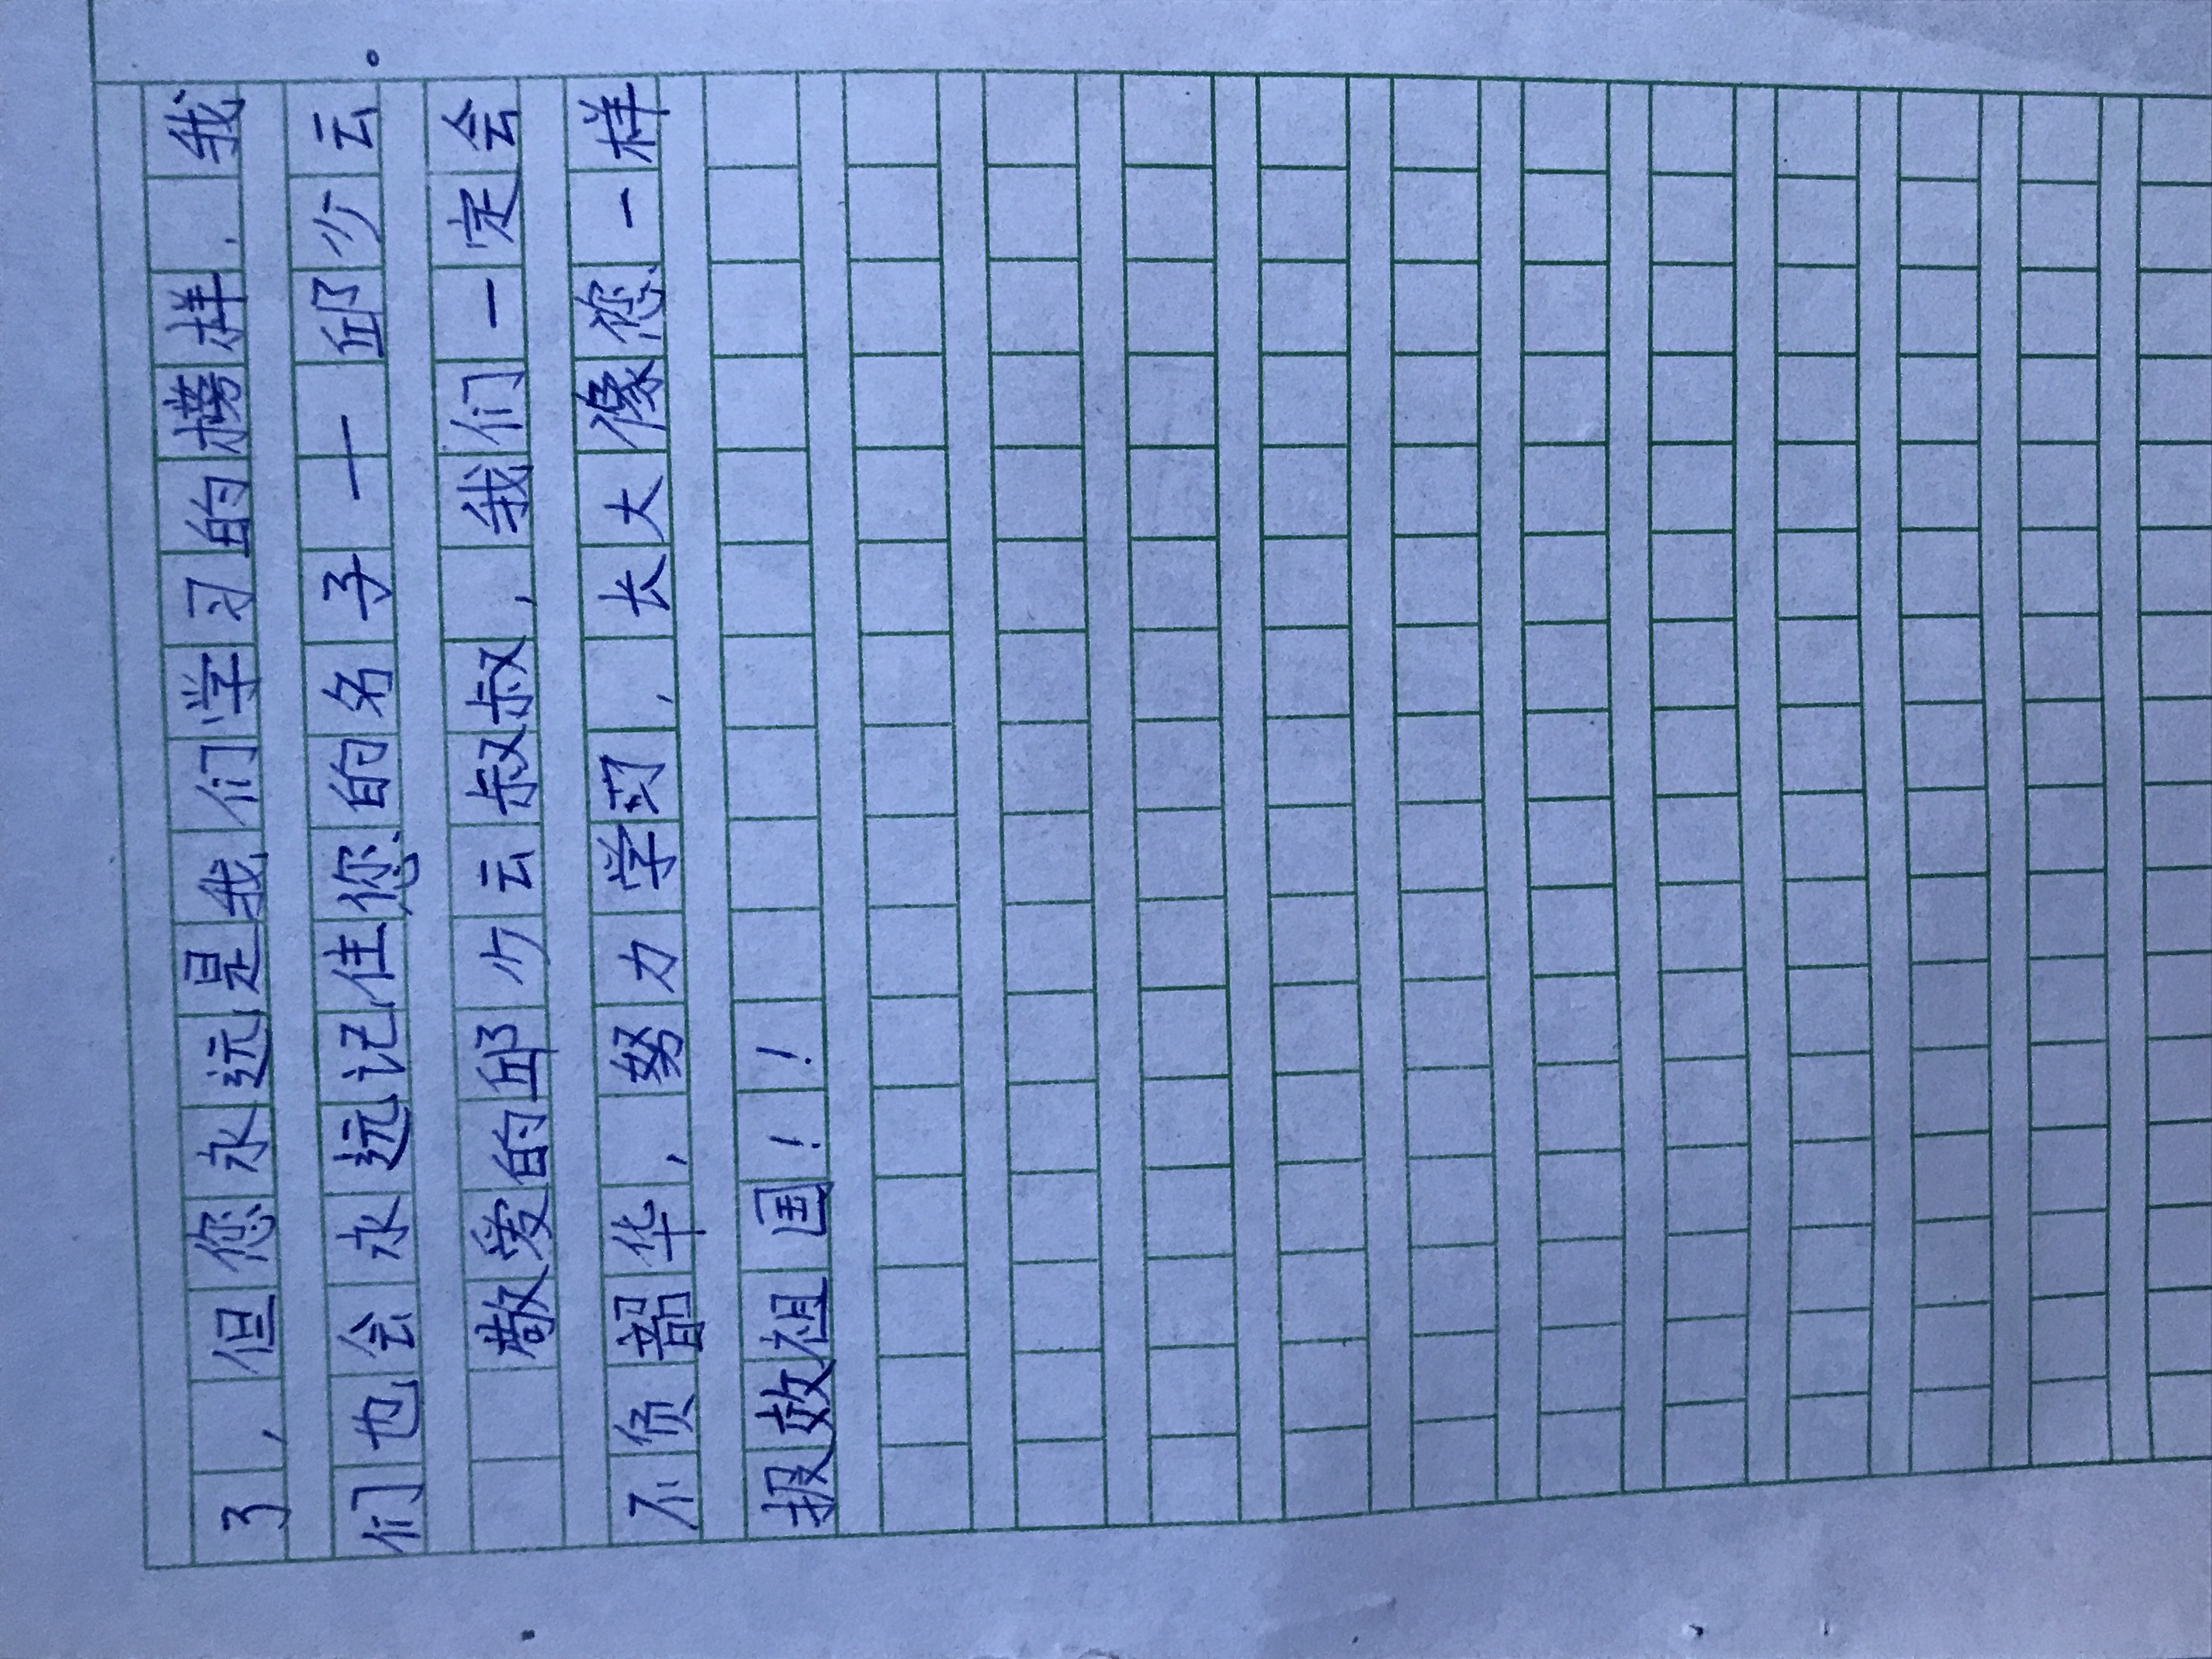 了，但您永远是我们学习的榜样，我
们也会永远记住您的名子——邱少云。
敬爱的邱少云叔叔，我们一定会
不负韶华，努力学习，长大像您一样
报效祖国！！